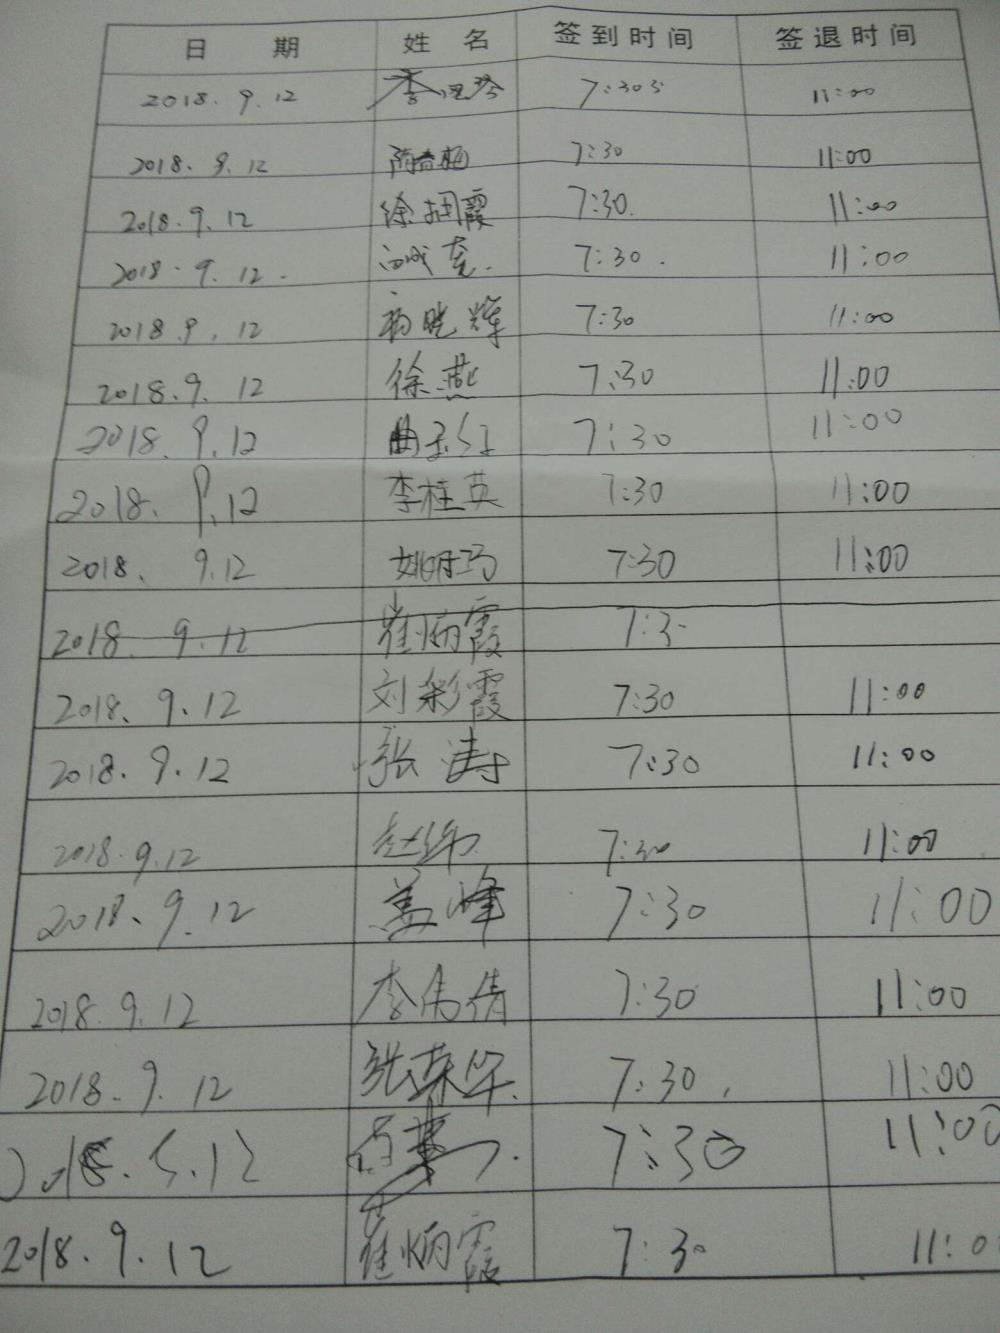 日 期 姓 名 签到时间 签退时间
2018.9.12 李 7:30 11:00
2018.9.12 7:30 11:00
2018.9.12 徐 霞 7:30. 11:00
2018.9.12. 7:30. 11:00
2018.9.12 杨晓辉 7:30 11:00
2018.9.12 徐燕 7:30 11:00
2018.9.12 曲 红 7:30 11:00
2018.9.12 李桂英 7:30 11:00
2018.9.12 姚 巧 7:30 11:00
2018.9.12 崔炳霞 7:3
2018.9.12 刘彩霞 7:30 11:00
2018.9.12 张涛 7:30 11:00
2018.9.12 赵 7:30 11:00
2018.9.12 姜峰 7:30 11:00
2018.9.12 李 倩 7:30 11:00
2018.9.12 张荣华. 7:30. 11:00
2018. .12 7:30 11:00
2018.9.12 崔炳霞 7:30 11:0